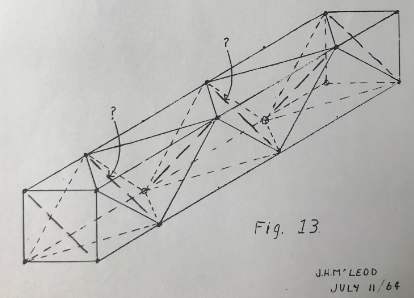 ?
?
Fig. 13
J.H.McLEOD
JULY 11/64